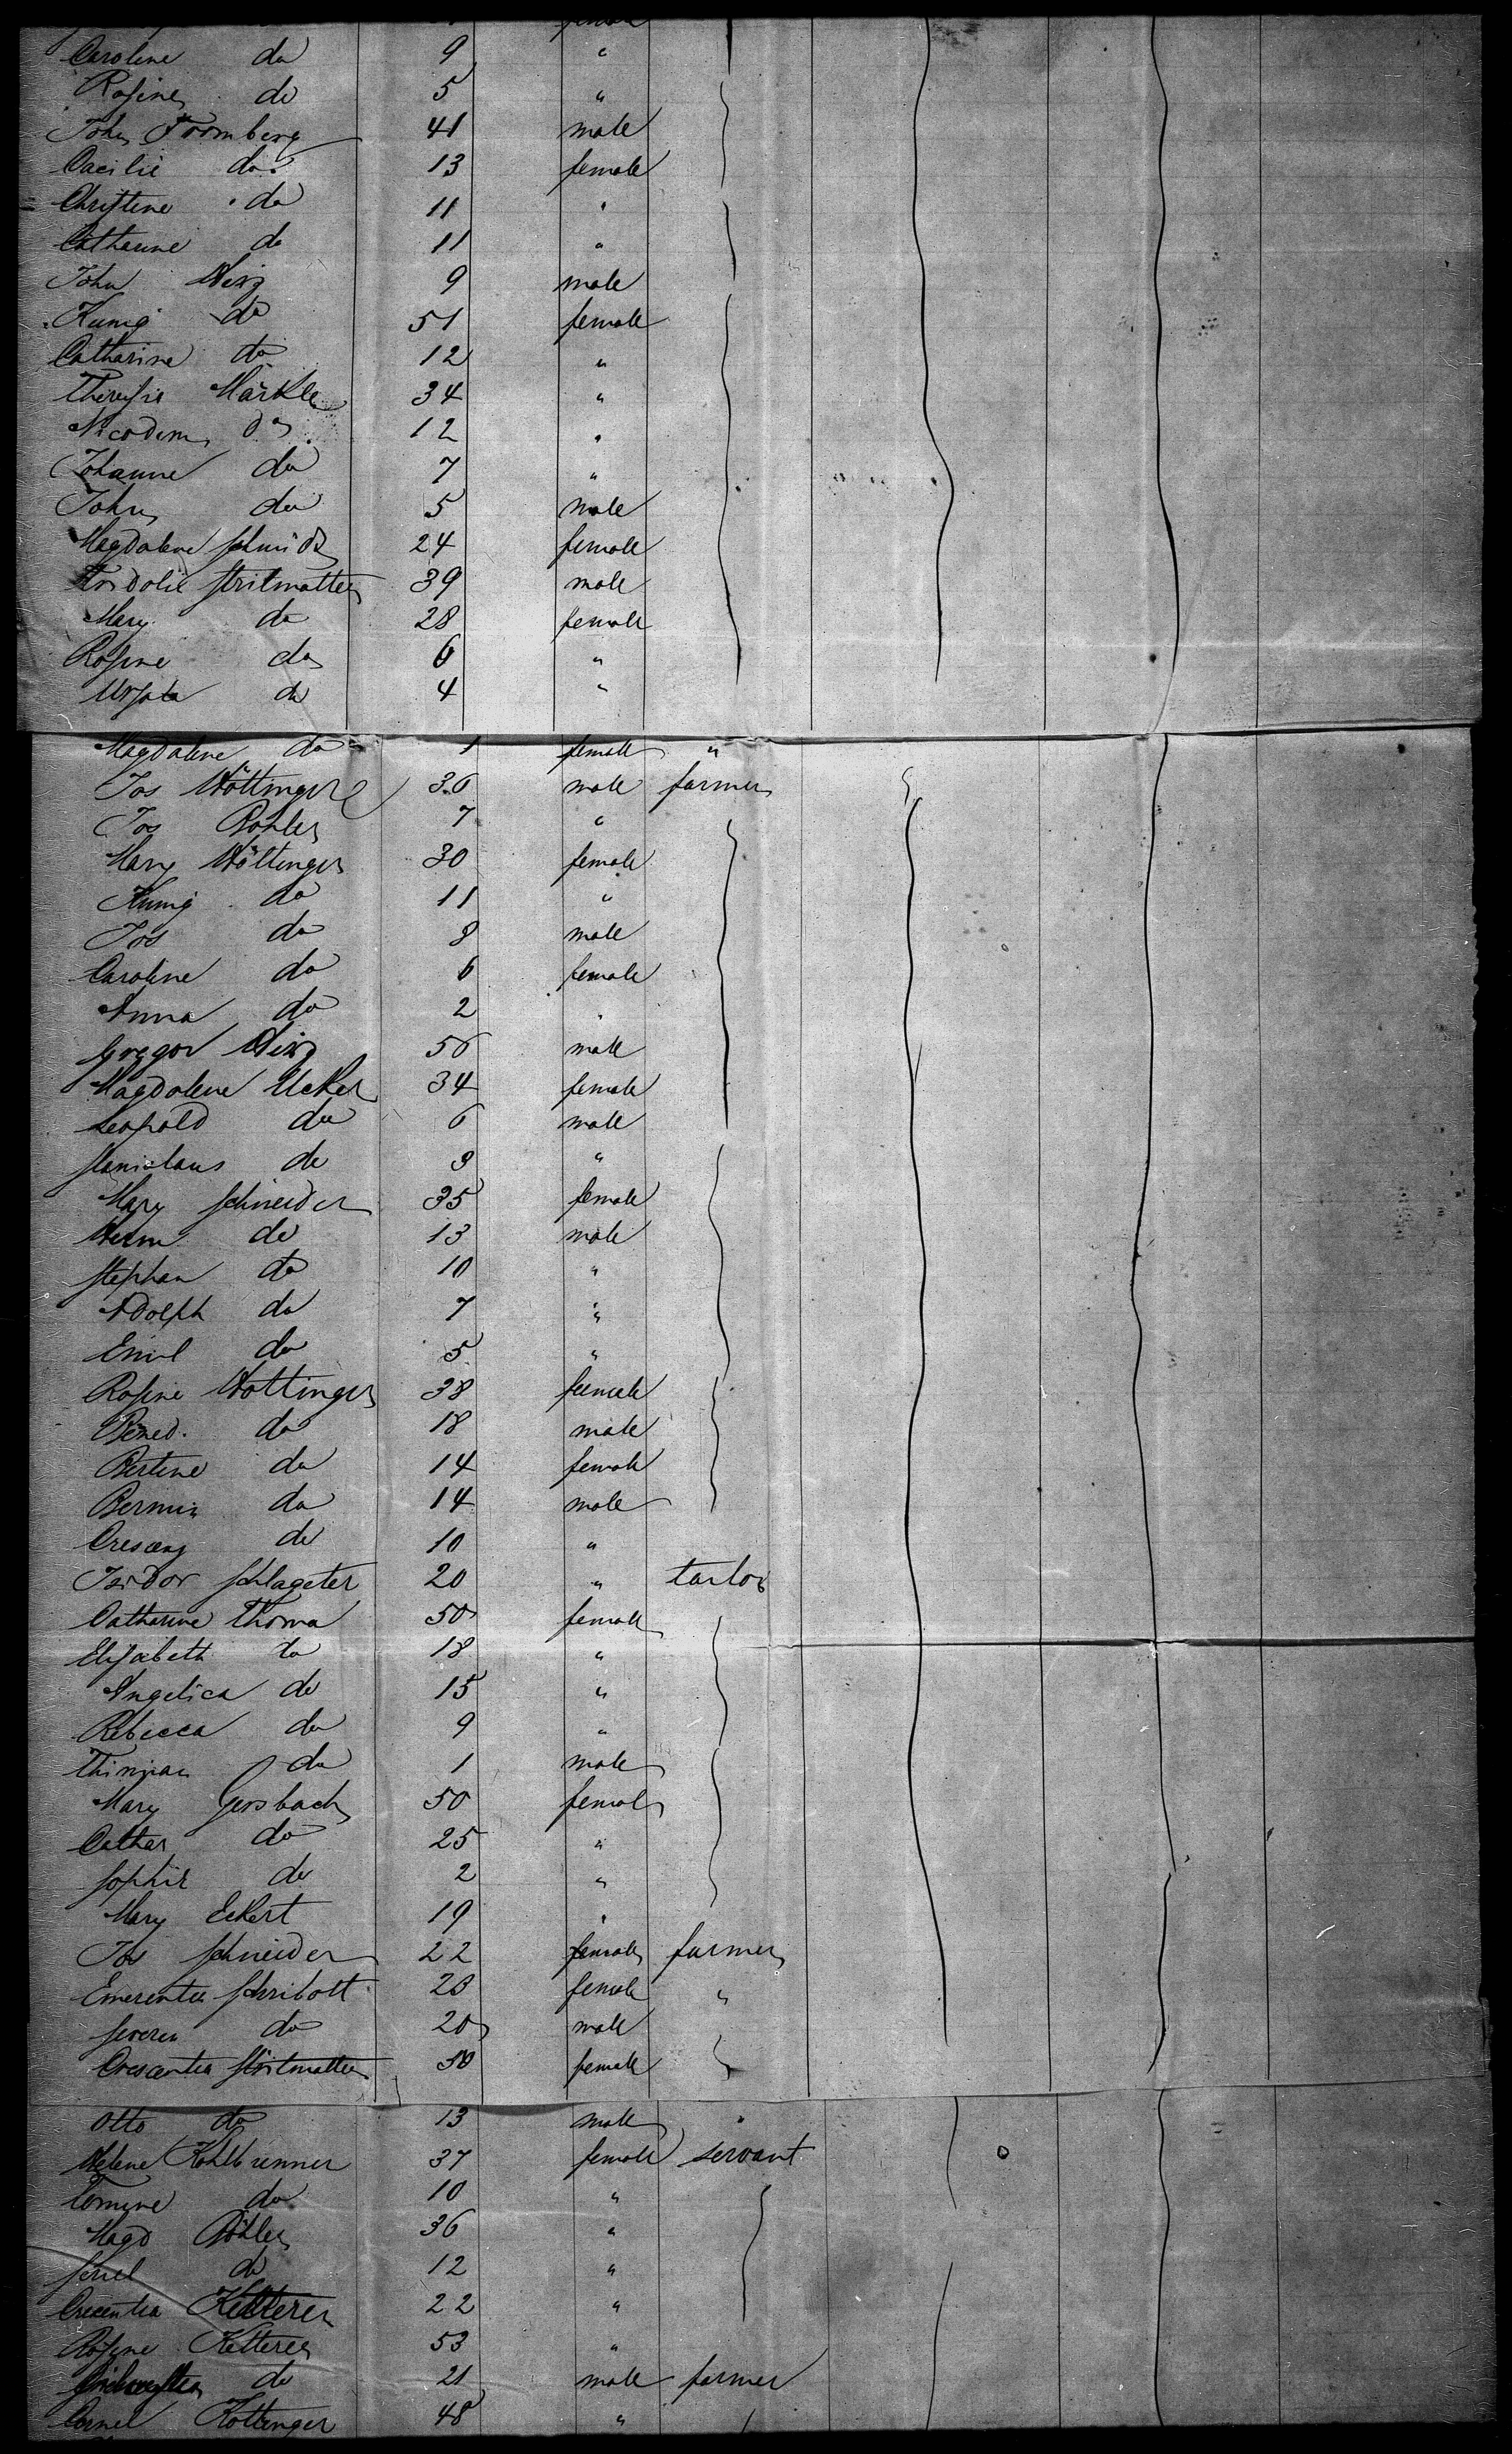 female
Caroline do 9 "
Rosine do 5 "
John Tromberg 41 male
Cacilie do 13 female
Christine do 11 "
Catharine do 11 "
John 9 male
Kunig do 51 female
Catharine do 12 "
Theresia Märkle 34 "
Nicodem do 12 "
Johanne do 7 "
John do 5 male
Magdalene Schmidt 24 female
Fridolin Stritmatter 39 male
Mary do 28 female
Rosine do 6 "
Ursula do 4 "
Magdalene do 1 female "
Jos Wöttinger 36 male farmer
Jos Bohler 7 "
Mary Wöttinger 30 female
Kunig do 11 "
Jos do 8 male
Caroline do 6 female
Anna do 2 "
Gregor 56 male
Magdalene Ucker 34 female
Leopold do 6 male
Stanislaus do 3 "
Mary Schneider 35 female
Herm do 13 male
Stephan do 10 "
Adolph do 7 "
Emil do 5 "
Rosine Wottinger 38 female
Bened. do 18 male
Bertine do 14 female
Bermin do 14 male
Cresceng do 10 "
Isidor Schlageter 20 " tailor
Catharine Thoma 50 female
Elisabeth do 18 "
Angelica do 15 "
Rebecca do 9 "
do 1 male
Mary Gersbach 50 female
Cathar do 25 "
Sophie do 2 "
Mary Eckert 19 "
Jos Schneider 22 female farmer
Emerentia Schribott 28 female "
Severin do 20 male
Crescentia Stritmatter 50 female
Otto do 13 male "
Helene Kohlbrenner 37 female servant
do 10 "
Magd Böhler 36 "
do 12 "
Crecentia Ketterer 22 "
Rosine Ketterer 53 "
do 21 male farmer
Cornel Kottinger 48 "